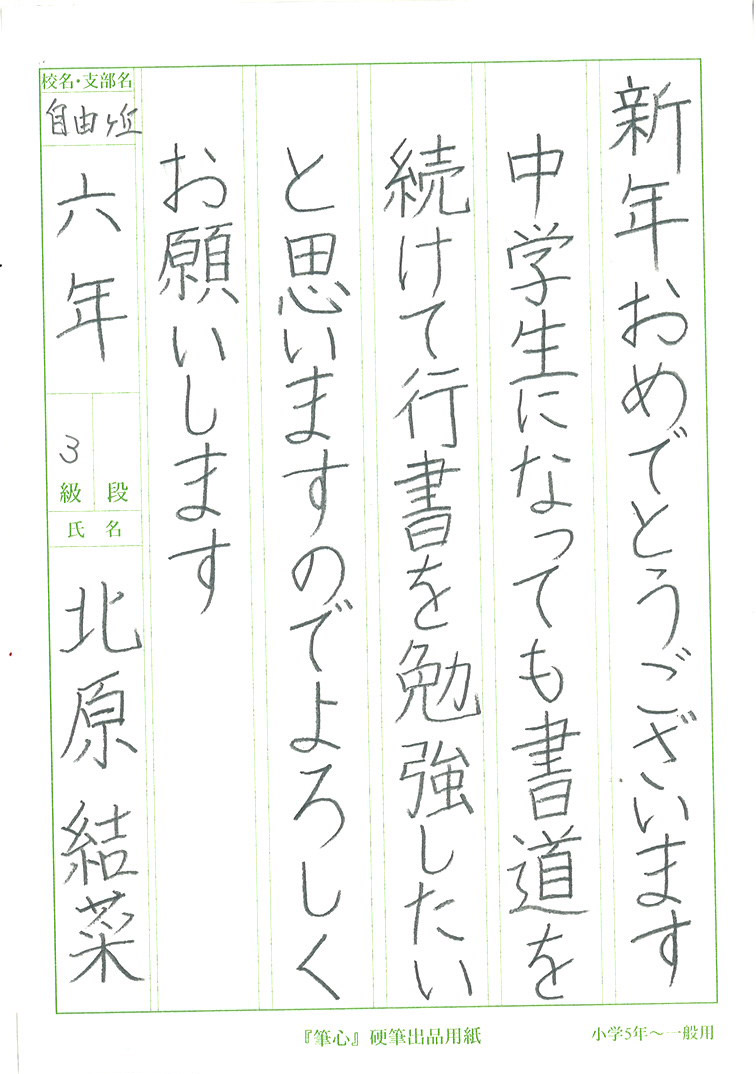 新年おめでとうございます
中学生になっても書道を
続けて行書を勉強したい
と思いますのでよろしく
お願いします
校名・支部名
自由ヶ丘
六年
3
級 段
氏名
北原結菜
『筆心』硬筆出品用紙
小学5年〜一般用